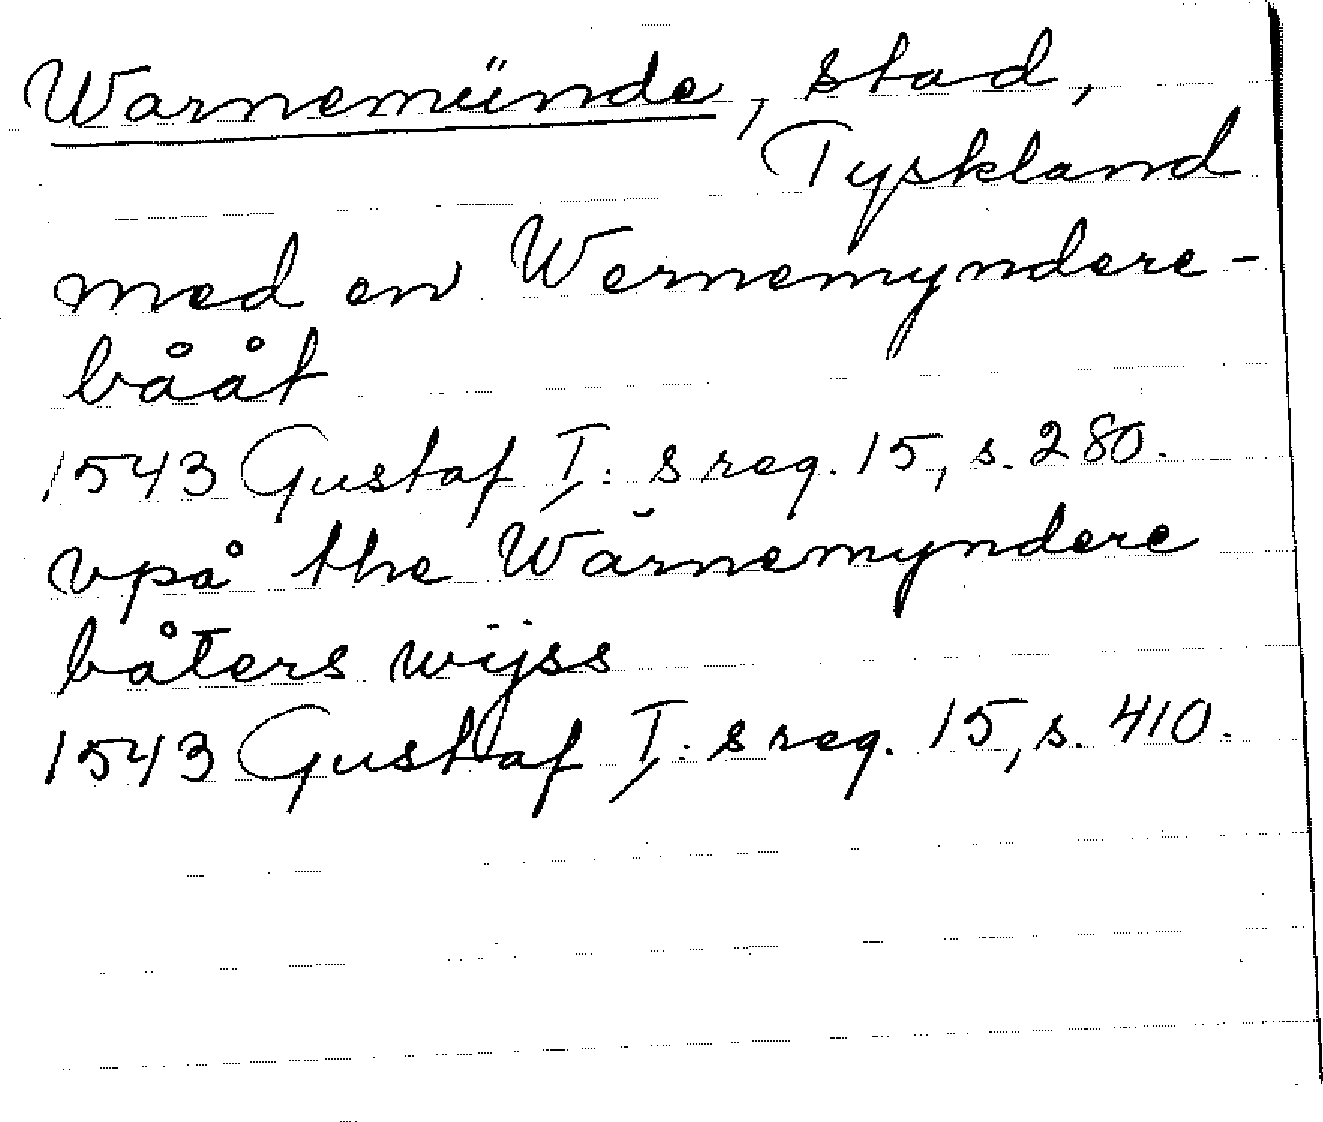 Warnemünde, stad,
Tyskland
med en Wernemyndere-
bååt
1543 Gustaf I:s reg. 15, s. 280.
vpå the Wärnemyndere
båters wijss
1543 Gustaf I:s reg. 15, s. 410.